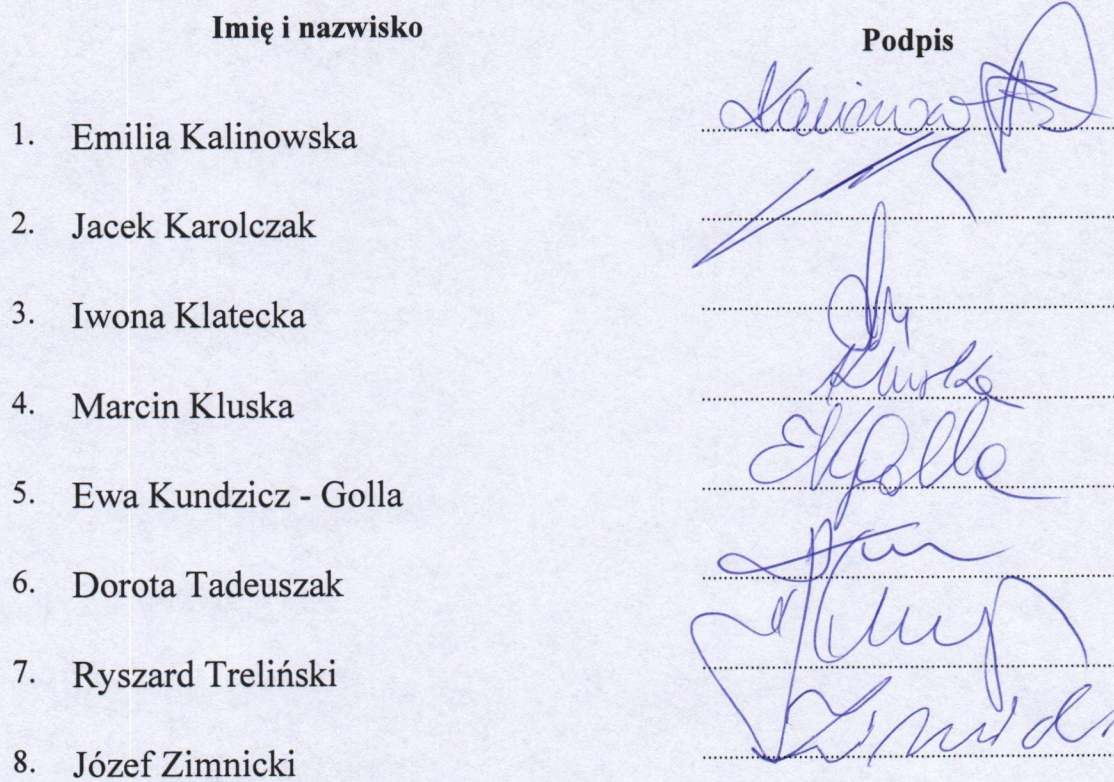 Imię i nazwisko Podpis
1. Emilia Kalinowska
2. Jacek Karolczak
3. Iwona Klatecka
4. Marcin Kluska Kluska
5. Ewa Kundzicz - Golla EKGolla
6. Dorota Tadeuszak
7. Ryszard Treliński
8. Józef Zimnicki